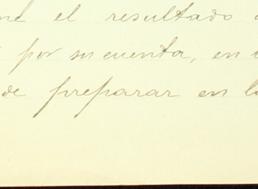 el resultado
por su cuenta, en
de preparar en la